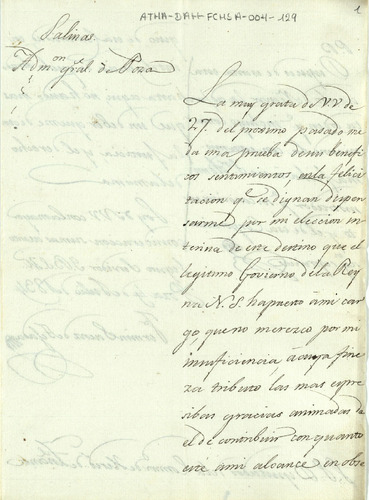 ATHA-DAH-FCHSA-004-129
1
Salinas
Admon gral. de Poza
La muy grata de VV de
27, del proximo pasado me
da una prueba de sus benefi
cos sentimientos, en la felici
tacion q. se dignan dispen
sarme por mi eleccion in
terina de este destino que el
legitimo Govierno de la Rey
na N. S. ha puesto á mi car
go, que no merezco por mi
insuficiencia, á cuya fine
za tributo las mas expre
sibas gracias animadas de
el de contribuir con quanto
esté a mi alcance en obse